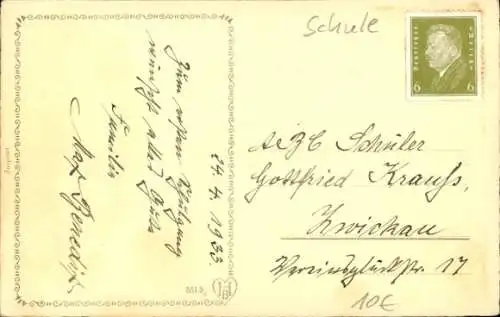 Schule
Deutsches Reich
6 6
Zum ersten Schulgang
wünscht alles Gute
Familie
Max Benedix
24.4.1933
ABC Schüler
Gottfried Krauss,
Zwickau
Vereinsglückstr. 17
10€